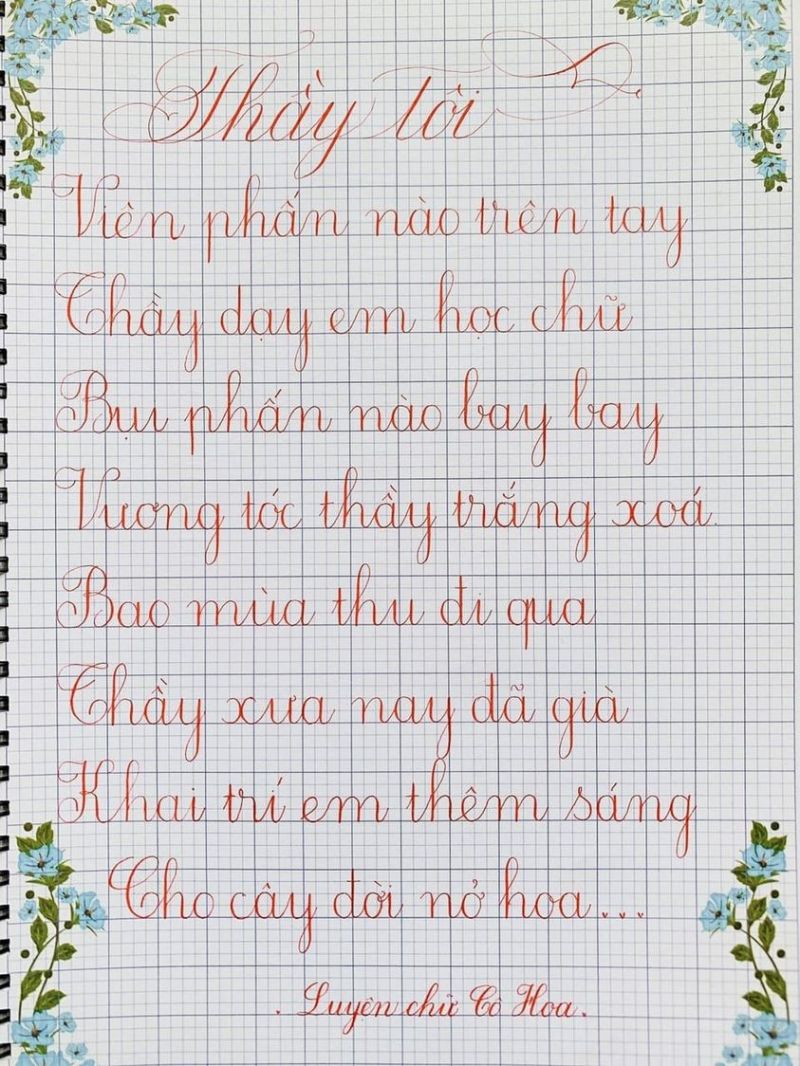 Thầy tôi
Viên phấn nào trên tay
Thầy dạy em học chữ
Bụi phấn nào bay bay
Vương tóc thầy trắng xoá.
Bao mùa thu đi qua
Thầy xưa nay đã già
Khai trí em thêm sáng
Cho cây đời nở hoa...
. Luyện chữ Cô Hoa.